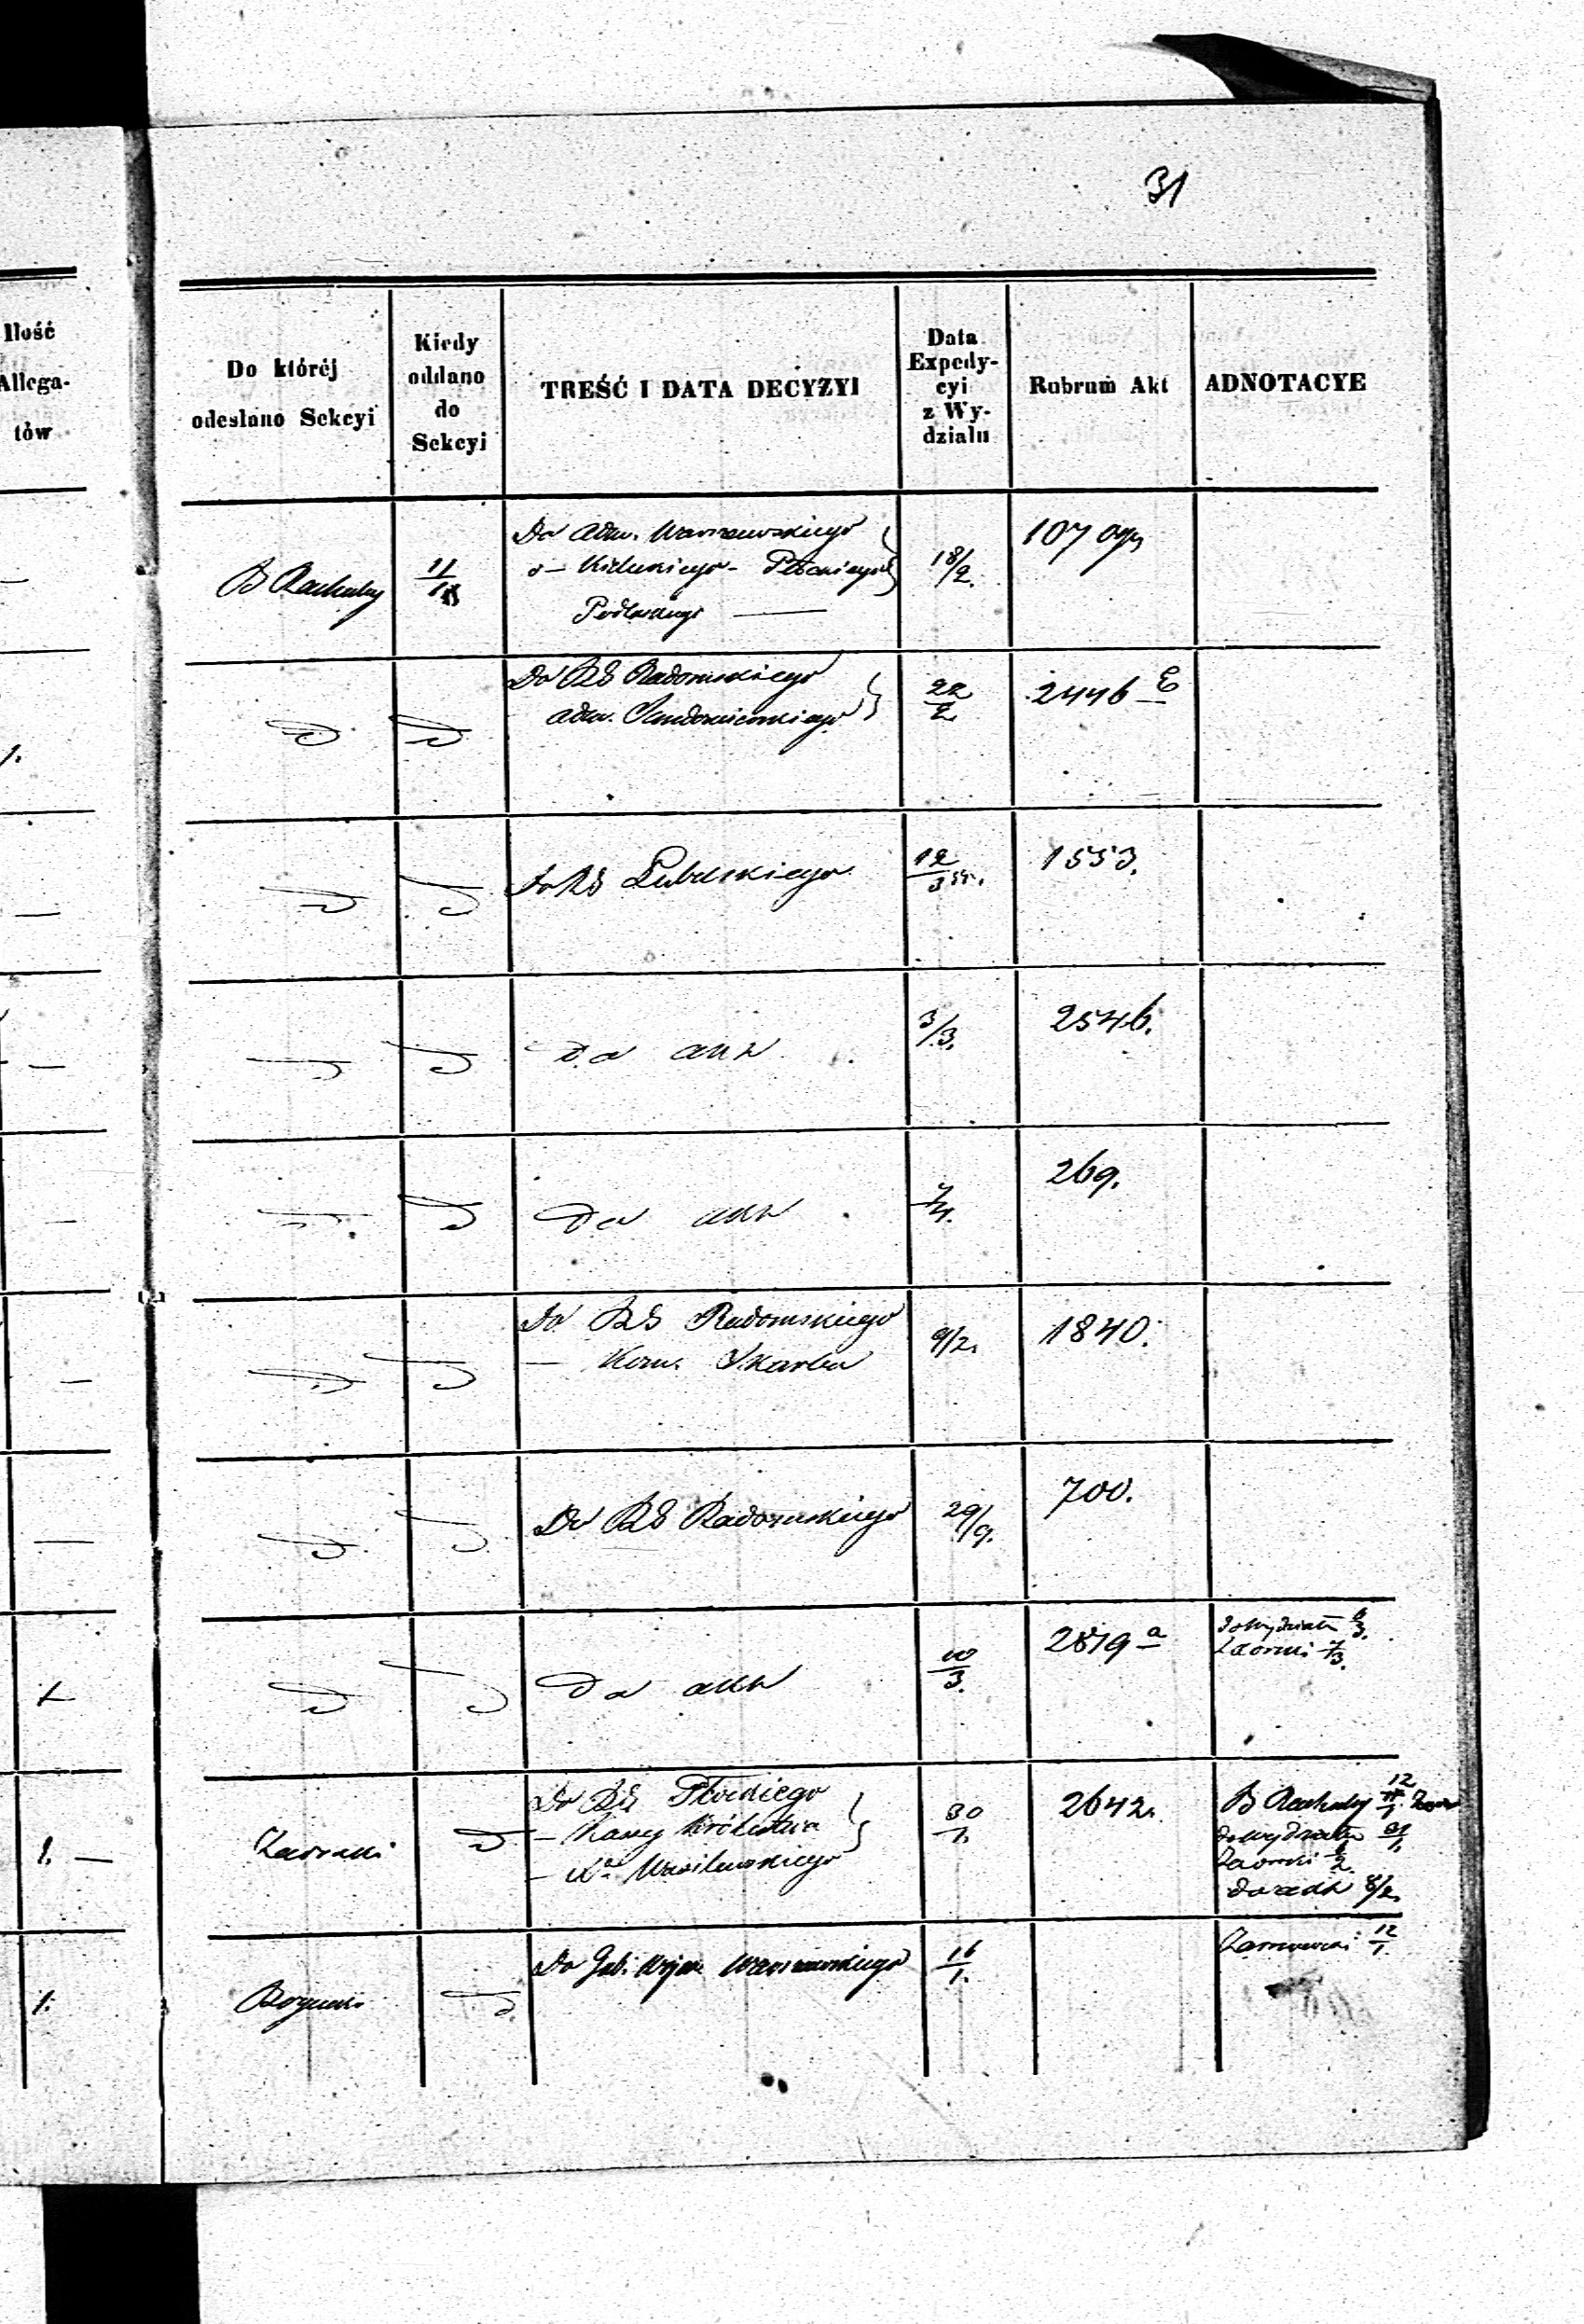 31
Ilość
Allega-
tów
Do któréj
odesłano Sekcyi
Kiedy
oddano
do
Sekcyi
TREŚĆ I DATA DECYZYI
Data
Expedy-
cyi
z Wy-
działu
Rubrum Akt
ADNOTACYE
B Rachuby
11/1
Do Adm. Warszawskiego
Kieleckiego - Płockiego
Podlaskiego —
18/2.
107
Do RG Radomskiego
Adm. Sandomierskiego
22/2
2446 E
1.
Do RG Lubelskiego
12/3
1553.
Do akt
3/3.
2546.
Do akt
7/4.
269.
Do RG Radomskiego
— Kom. Skarbu
9/2.
1840.
Do RG Radomskiego
29/9.
700.
1
Do akt
10/3.
2519 a
do Wydziału 6/3.
Zaorski 7/3.
1. —
Zaorski
Do RG Płockiego
— Kassy Królestwa
— Wasilewskiego
30/1.
2642.
B Rachuby 12/1
do Wydziału 31/1.
Zaorski 1/2
8/2.
1.
Do Gub. Wojen Warszawskiego
16/1.
12/1.